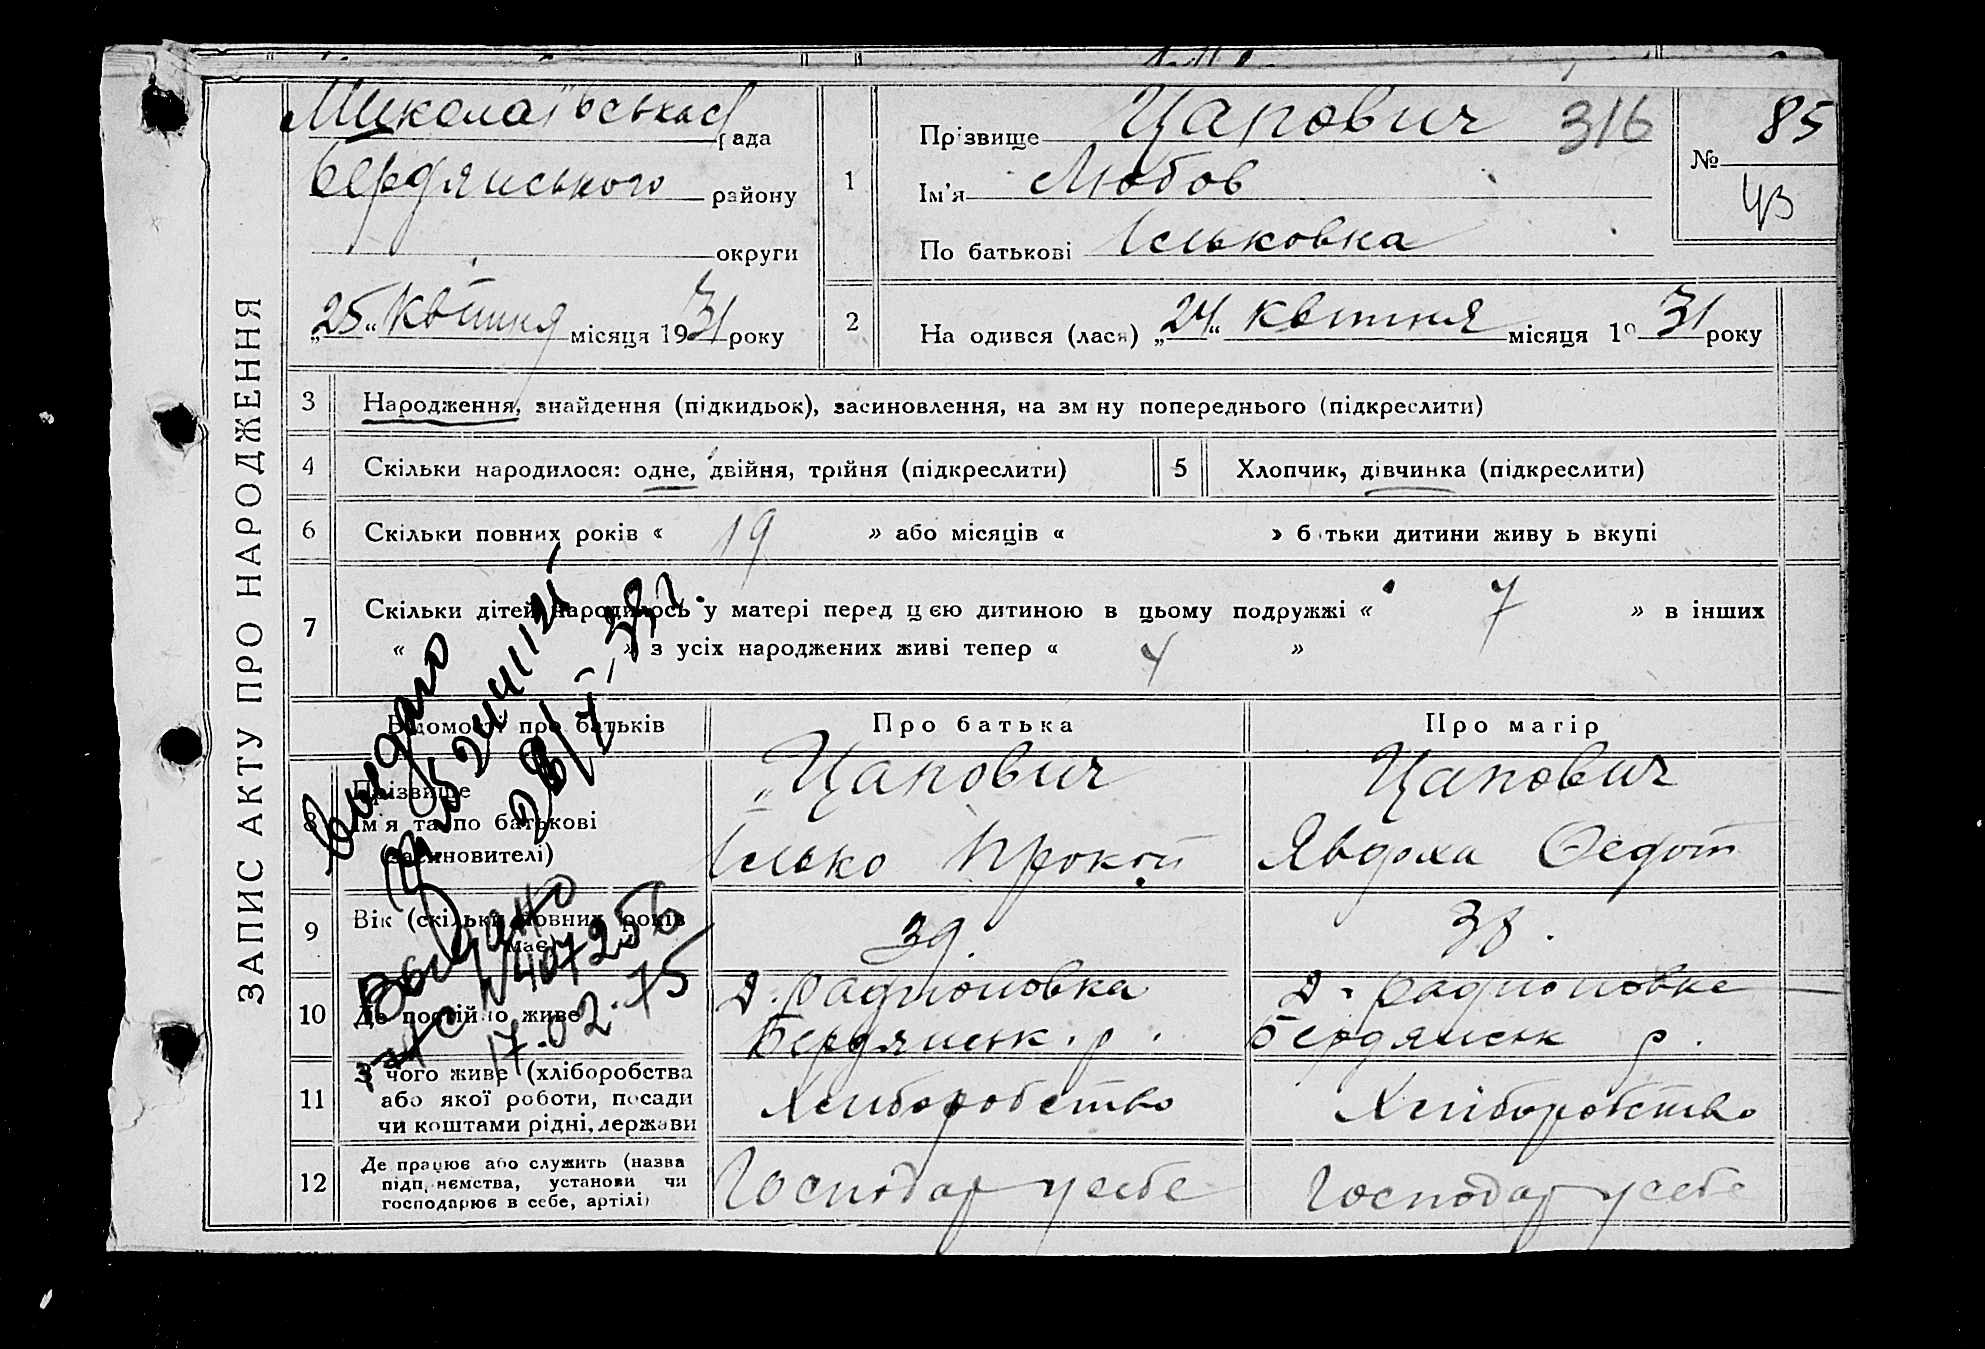 ЗАПИС АКТУ ПРО НАРОДЖЕННЯ
Миколаївська рада
Бердянського району
округи
„25“ Квітня місяця 1931 року
1
Прізвище Цапович 316
Ім'я Любов
По батькові Ільковна
№ 85
43
2
На одився (лася) „24“ квітня місяця 19 31 року
3 Народження, знайдення (підкидьок), засиновлення, на зм ну попереднього (підкреслити)
4 Скільки народилося: одне, двійня, трійня (підкреслити)
5 Хлопчик, дівчинка (підкреслити)
6 Скільки повних років « 19 » або місяців « » б тьки дитини живу ь вкупі
7 Скільки дітей народилось у матері перед цією дитиною в цьому подружжі « 7 » в інших
« » з усіх народжених живі тепер « 4 »
Відомості про батьків
Про батька
Про матір
8 Прізвище
Ім'я та по батькові
(засиновителі)
Цапович
Ілько Прокоп
Цапович
Явдоха Федот
9 Вік (скільки повних років має)
39
38.
10 Де постійно живе
Д. Радионовка
Бердянськ. р.
Д. Радионовка
Бердянськ р.
11 З чого живе (хліборобства
або якої роботи, посади
чи коштами рідні, держави
Хліборобство
Хліборобство
12 Де працює або служить (назва
підп ємства, установи чи
господарює в себе, артілі)
Господар у себе
Господар у себе
Выдано
Выдано
№ 407256
17.02.75